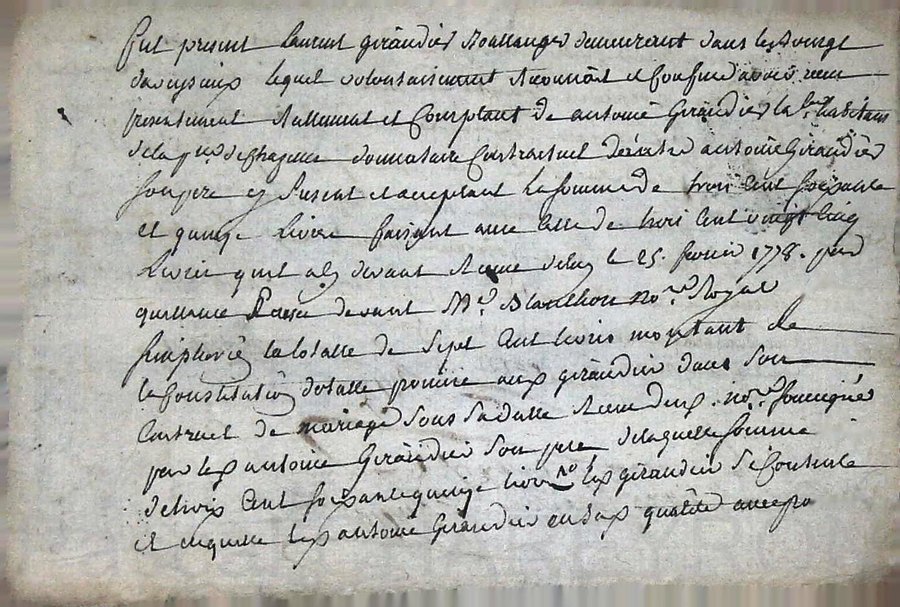 fut present laurent girandier Boullanger demeurant dans le Bourgt
lequel volontairement Reconnoit et Confesse avoir receu
presentement Reellement et Comptant de antoine Girandier lab.r habitant
de la p.sse de donnataire Contractuel de antoine Girandier
son pere cy present et acceptant la somme de trois Cent soixante
et quinze Livres faisant avec Celle de trois Cent vingt Cinq
Livres quil a cy devant Receue de luy le 25. fevrier 1778. par
quittance Passée devant M.e no.re Royal
la totalle de sept Cent livres montant de
la Constitution dotalle promise aux girandier dans son
Contract de mariage sous sa datte Receu des no.res soussignés
par ledt antoine Girandier son pere de laquelle somme
de trois Cent soixante quinze livres ledt girandier se Contente
et en quitte ledt antoine Girandier en sadt qualité avec pro